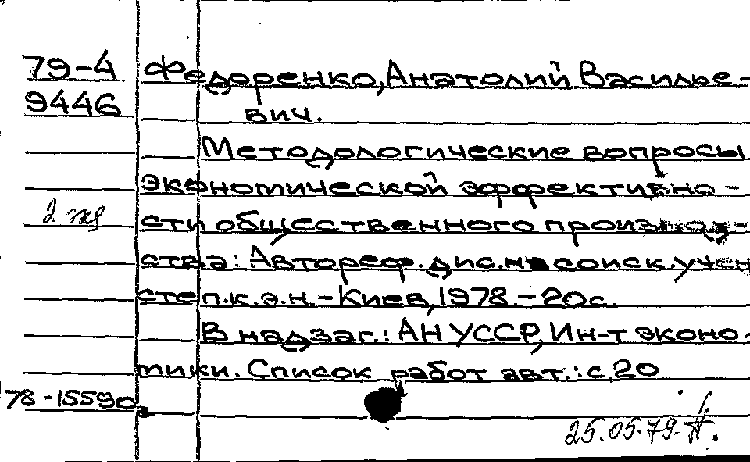 79-4 Федоренко, Анатолий Василье-
9446 вич.
Методологические вопросы
экономической эффективно-
2 экз сти общественного производ-
ства: Автореф. дис. на соиск. учен
степ. к.э.н. - Киев, 1978. - 20с.
В надзаг.: АН УССР, Ин-т эконо-
мики. Список работ авт.: с. 20
78-15590
25.05.79.